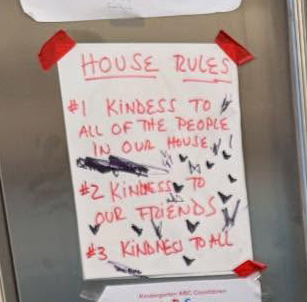 HOUSE RULES
#1 KINDESS TO
ALL OF THE PEOPLE
IN OUR HOUSE!
#2 KINDNESS TO
OUR FRIENDS
#3 KINDNESS TO ALL
Kindergarten ABC Countdown